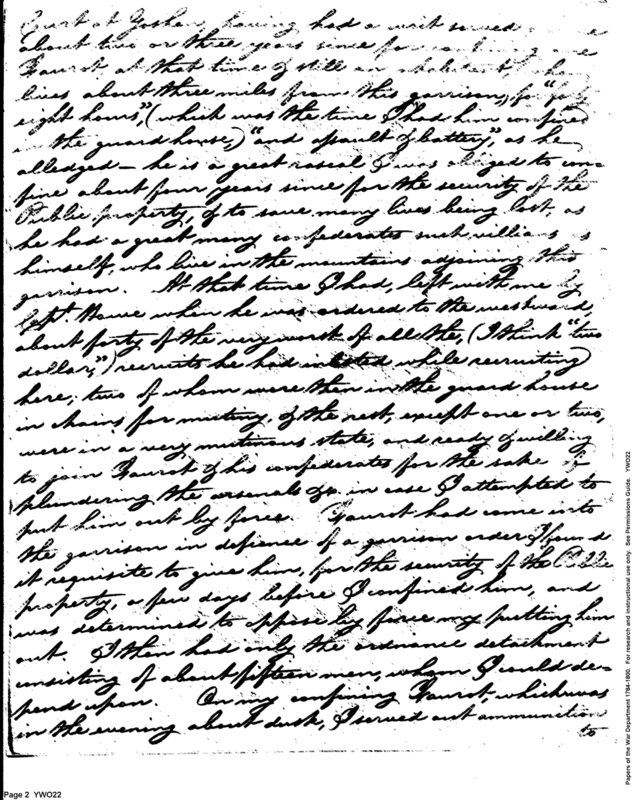 Court at Goshen, having had a writ served
about two or three years since for confining one
Faurot, at that time & still an inhabitant, & who
lives about three miles from this garrison, for "forty
eight hours", (which was the time I had him confined
in the guard house,) "and assault & battery", as he
alledged — he is a great rascal I was obliged to con=
fine about four years since for the security of the
Public property, & to save many lives being lost, as
he had a great many confederates such villians as
himself, who live in the mountains adjoining this
garrison. At that time I had, left with me by
Capt. Howe when he was ordered to the westward,
about forty of the very worst of all the, (I think "two
dollar,") recruits he had inlisted while recruiting
here; two of whom were then in the guard house
in chains for mutiny, & the rest, except one or two,
were in a very mutinous state, and ready & willing
to join Faurot & his confederates for the sake of
plundering the arsenals &c in case I attempted to
put him out by force. Faurot had come into
the garrison in defience of a garrison order I found
it requisite to give him, for the security of the Public
property, a few days before I confined him, and
was determined to oppose by force my putting him
out. I then had only the ordnance detachment
consisting of about fifteen men, whom I could de=
pend upon. On my confining Faurot, which was
in the evening about dusk, I served out ammunition
to
Page 2 YWO22
Papers of the War Department 1784-1800. For research and instructional use only. See Permissions Guide. YWO22